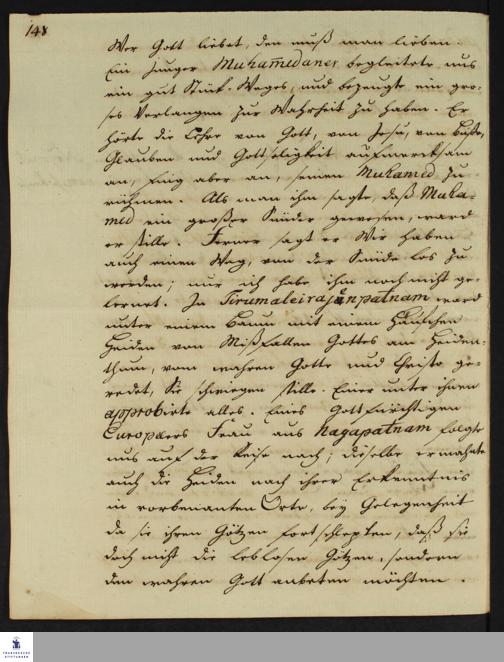 148
Wer Gott liebet, den muß man lieben.
Ein junger Muhamedaner begleitete uns
ein gut Stük-Weges, und bezeugte ein gro-
ses Verlangen zur Wahrheit zu haben. Er
hörte die Lehre von Gott, von Jesu, von Buße,
Glauben und Gottseligkeit aufmercksam
an, fing aber an, seinen Muhamed zu
rühmen. Als man ihm sagte, daß Muha-
med ein großer Sünder gewesen, ward
er stille. Ferner sagt er Wir haben
auch einen Weg, von der Sünde los zu
werden; nur ich habe ihn noch nicht ge-
lernet. In Tirumaleirajanpatnam ward
unter einem Baum mit einem Häufchen
Heiden vom Mißfallen Gottes am Heiden-
thum, vom wahren Gotte und Christo ge-
redet, Sie schwiegen stille. Einer unter ihnen
approbirte alles. Eines Gottfürchtigen
Europæers Frau aus Nagapatnam folgte
uns auf der Reise nach; dieselbe ermahnte
auch die Heiden nach ihrer Erkenntnis
in vorbenanten Orte, bey Gelegenheit
da sie ihren Götzen fortschlepten, daß sie
doch nicht die leblosen Götzen, sondern
den wahren Gott anbeten möchten.
FRANCKESCHE
STIFTUNGEN